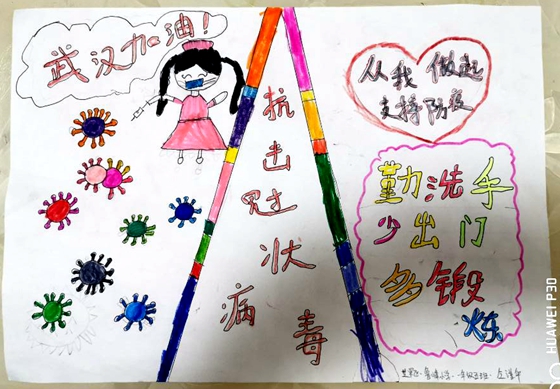 武汉加油！
抗击冠状病毒
从我做起
支持防疫
勤洗手
少出门
多锻炼
HUAWEI P30